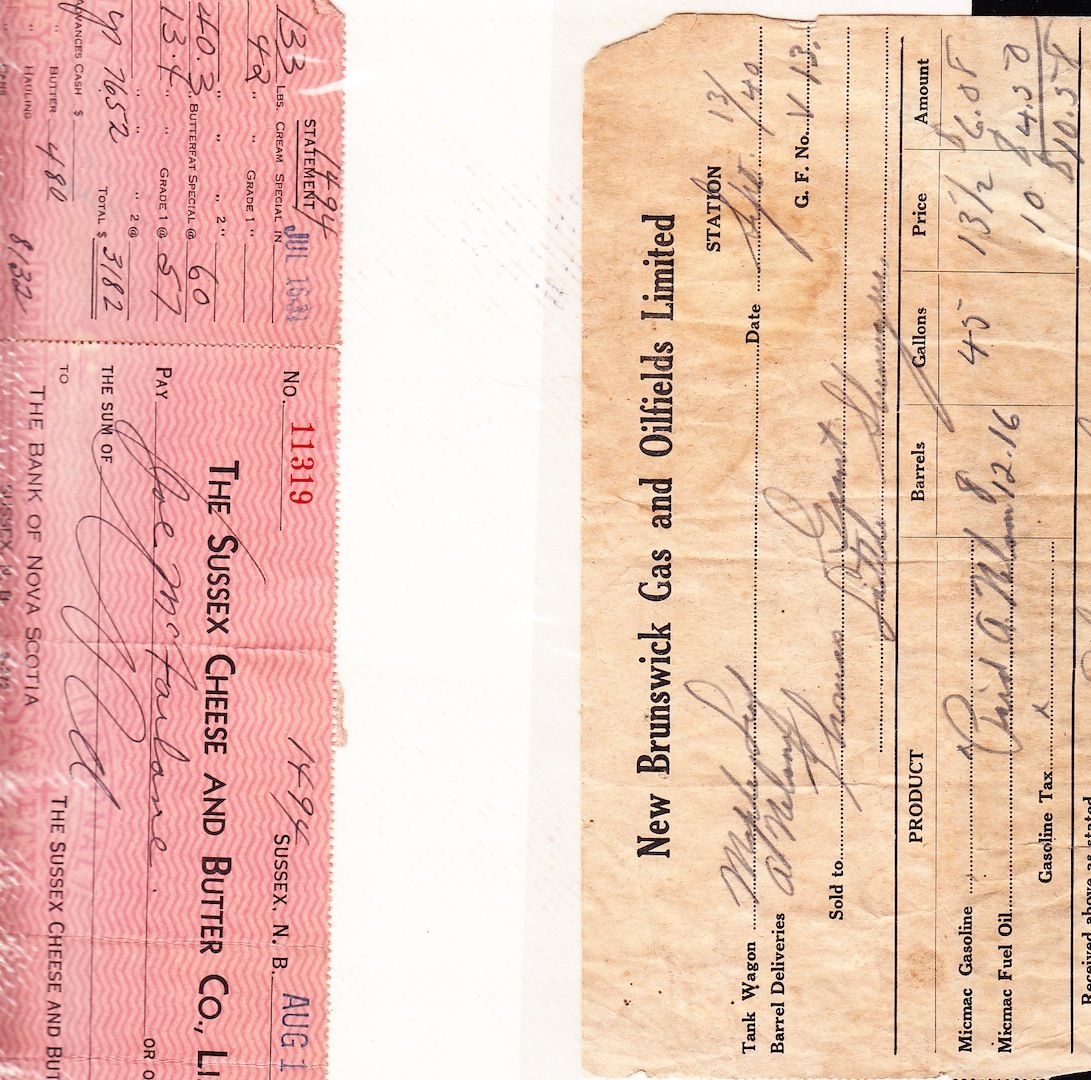 STATEMENT 1494
JUL 16 31
133 LBS. CREAM SPECIAL IN
42 " " GRADE 1 "
" " 2 "
40.3 BUTTERFAT SPECIAL @ 60
13.4 " GRADE 1 @ 57
" " 2 @
7652 TOTAL $ 3182
ADVANCES CASH $
" BUTTER 480
" HAULING
8132
No. 11319
1494 SUSSEX, N. B. AUG 1
THE SUSSEX CHEESE AND BUTTER CO., LI
PAY Joe McFarlane.
OR O
THE SUM OF
TO
THE BANK OF NOVA SCOTIA
SUSSEX, N. B.
THE SUSSEX CHEESE AND BUT
New Brunswick Gas and Oilfields Limited
STATION
Tank Wagon
Date Sept. 13/40
Barrel Deliveries
G. F. No. V 13.
Sold to Thomas Grant
PRODUCT Barrels Gallons Price Amount
Micmac Gasoline 45 13 1/2 $6.08
Micmac Fuel Oil Paid 10 $4.50
Gasoline Tax x $10.58
Received above as stated